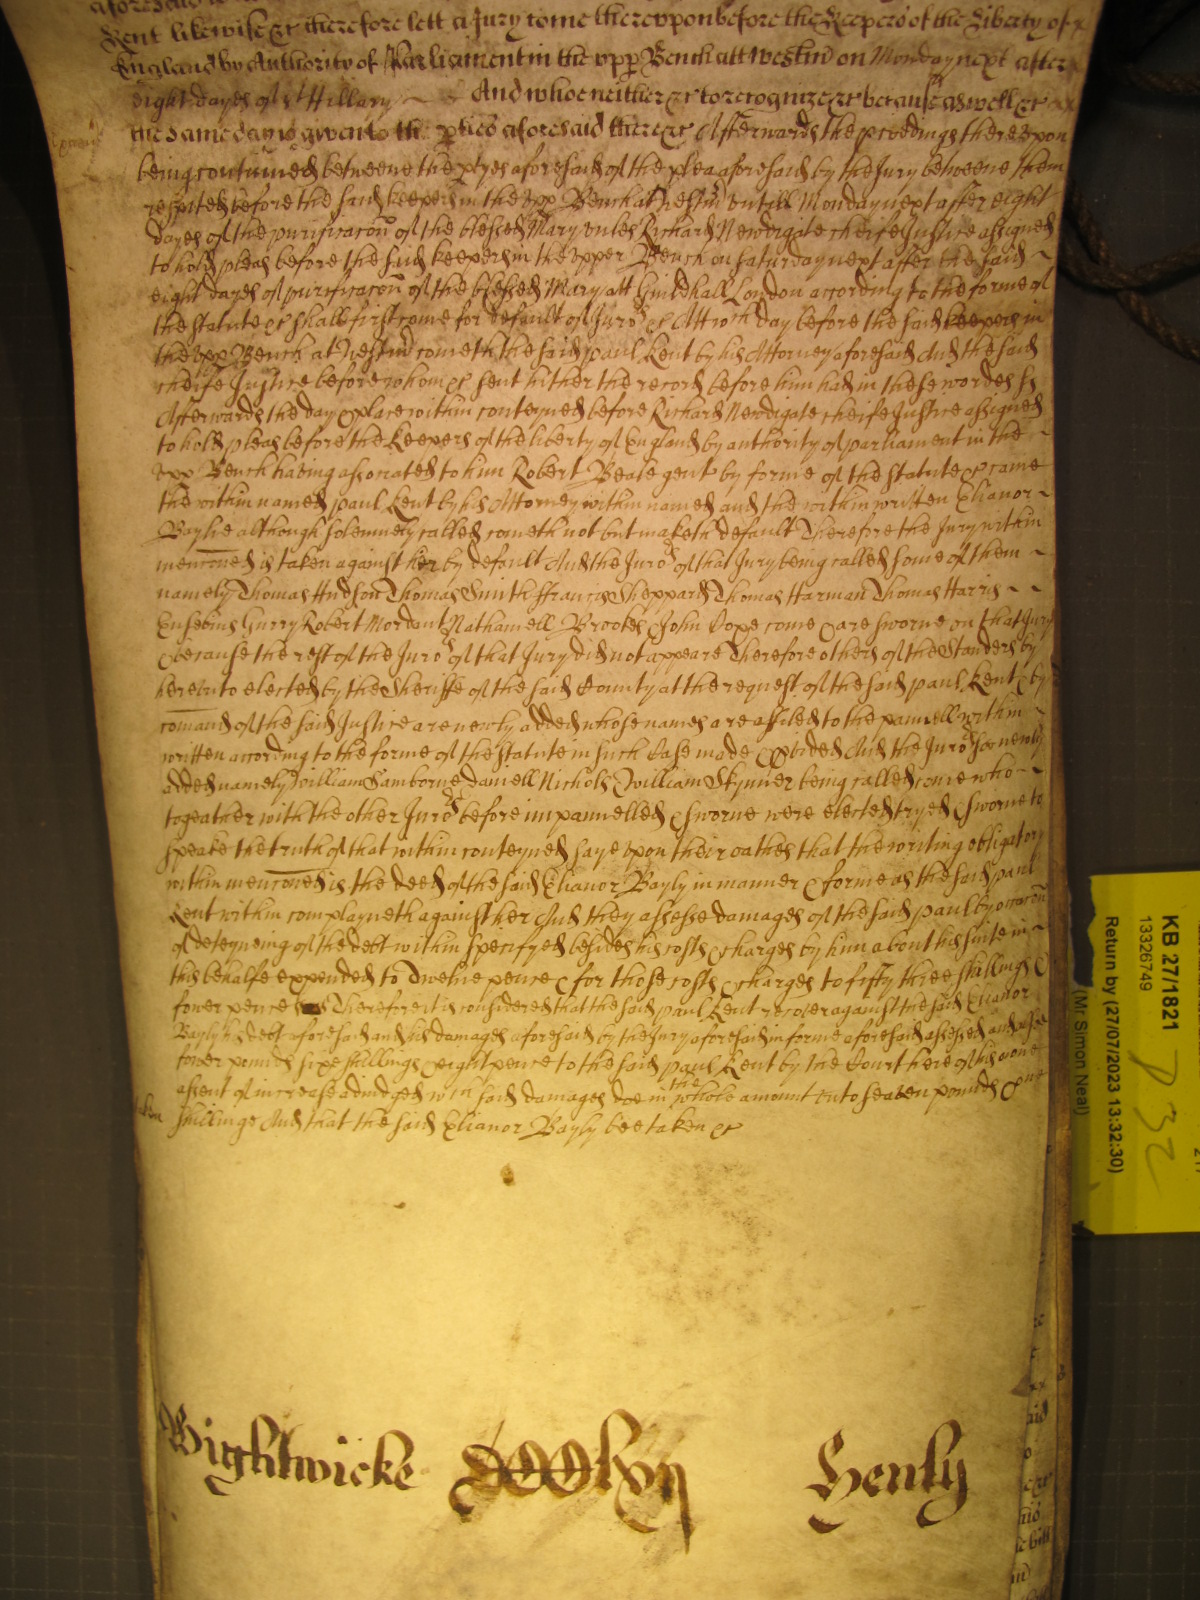 Kent likewise &c therefore lett a Jury come thereupon before the Keepers of the Liberty of
England by Authority of Parliament in the upp Bench att Westm on Monday next after
eight dayes of St Hillary And whoe neither &c to recognize &c because aswell &c
the same day is given to the pties aforesaid there &c Afterwards the pceedings thereupon
being continued betweene the ptyes aforesaid of the plea aforesaid by the Jury betweene them
respited before the said keepers in the Upp Bench at Westm untill Monday next after eight
dayes of the purificacon of the blessed Mary unles Richard Newdigate cheife Justice assigned
to hold pleas before the said keepers in the Upper Bench on Saturday next after the said
eight dayes of purificacon of the blessed Mary att Guildhall London according to the forme of
the statute &c shall first come for default of Juro &c Att wch day before the said keepers in
the Upp Bench at Westm cometh the said paul Kent by his Attorney aforesaid And the said
cheife Justice before whom &c sent hither the record before him had in these wordes
Afterwards the day & place within conteyned before Richard Newdigate cheife Justice assigned
to hold pleas before the Keepers of the liberty of England by authority of parliament in the
Upp Bench having associated to him Robert Beale gent by forme of the statute &c came
the within named paul Kent by his Attorney within named and the within written Elianor
Baylie although solemnely called cometh not but maketh default Therefore the Jury within
menconed is taken against her by default And the Juro of that Jury being called some of them
namely Thomas Hudson Thomas Smith ffrancis Sheppard Thomas Harman Thomas Harris
Eusebius Gurry Robert Mordant Nathaniell Brookes & John Cope come & are sworne on that Jury
& because the rest of the Juro of that Jury did not appeare Therefore others of the Standers by
hereunto elected by the Sheriffe of the said County at the request of the said paul Kent & by
comand of the said Justice are newly added whose names are affiled to the pannell within
written according to the forme of the statute in such Case made & pvided And the Juro soe newly
added namely William Samborne daniell Nichols & William Skynner being called come who
togeather with the other Juro before impannelled & sworne were elected tryed & sworne to
speake the truth of that within conteyned saye upon their oathes that the writing obligatory
within menconed is the deed of the said Elianor Bayly in manner & forme as the said paul
Kent within complayneth against her And they assesse damages of the said paul by occacon
of deteyneing of the debt within specifyed besides his costs & charges by him about his suite in
this behalfe expended to Twelve pence & for those costs & charges to fifty three shillings &
fower pence Therefore it is considered that the said paul Kent recover against the said Elianor
Bayly his debt aforesaid and his damages aforesaid by the Jury aforesaid in forme aforesaid assessed and alsoe
fower pounds sixe shillings & eight pence to the said paul Kent by the Court here of his owne
assent of increase adiudged wch said damages doe in the whole amount unto seaven pounds & one
taken shillings And that the said Elianor Bayly bee taken &c
Wightwicke
Henly
KB 27/1821
13326749
Return by (27/07/2023 13:32:30)
(Mr Simon Neal)